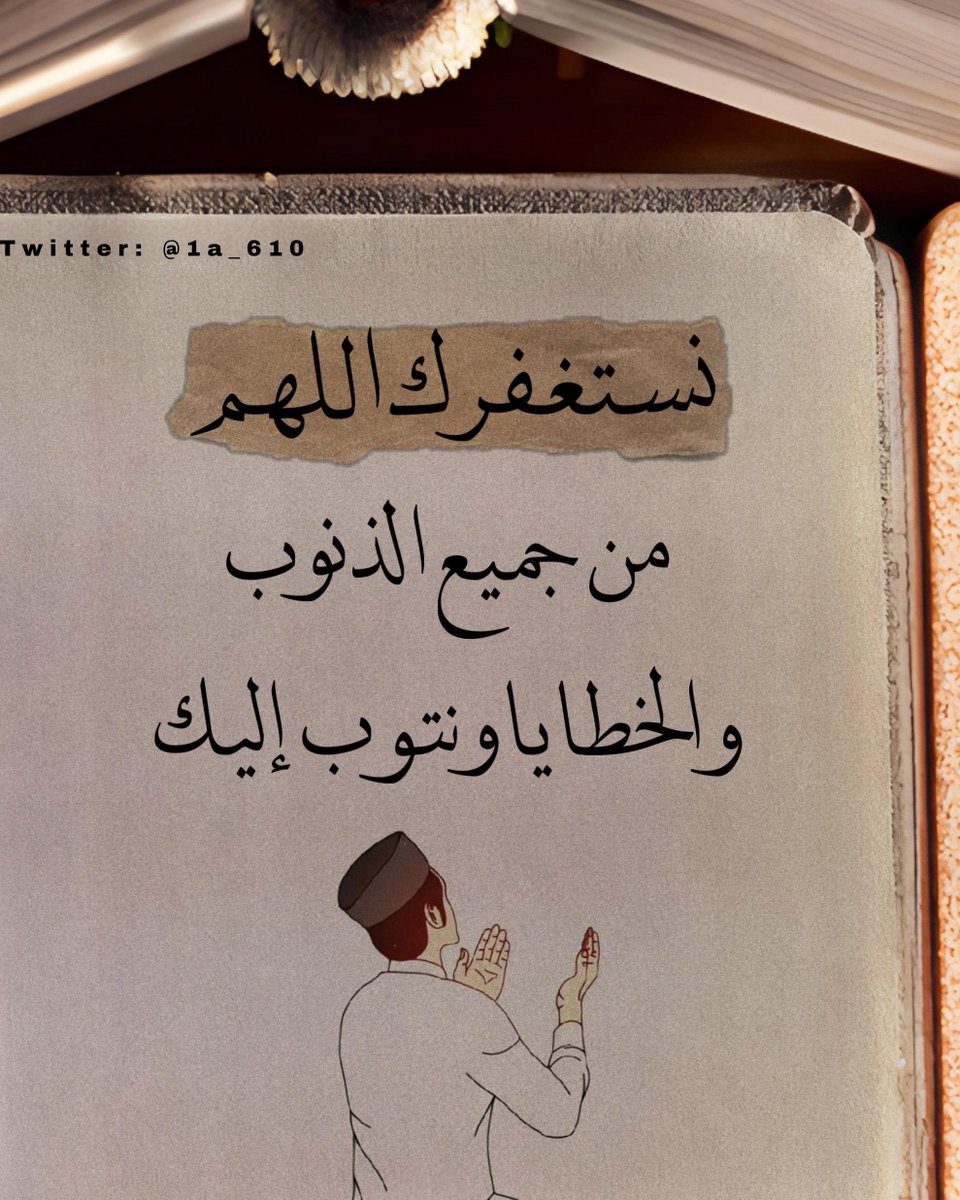 Twitter: @1a_610
نستغفرك اللهم
من جميع الذنوب
والخطايا ونتوب إليك